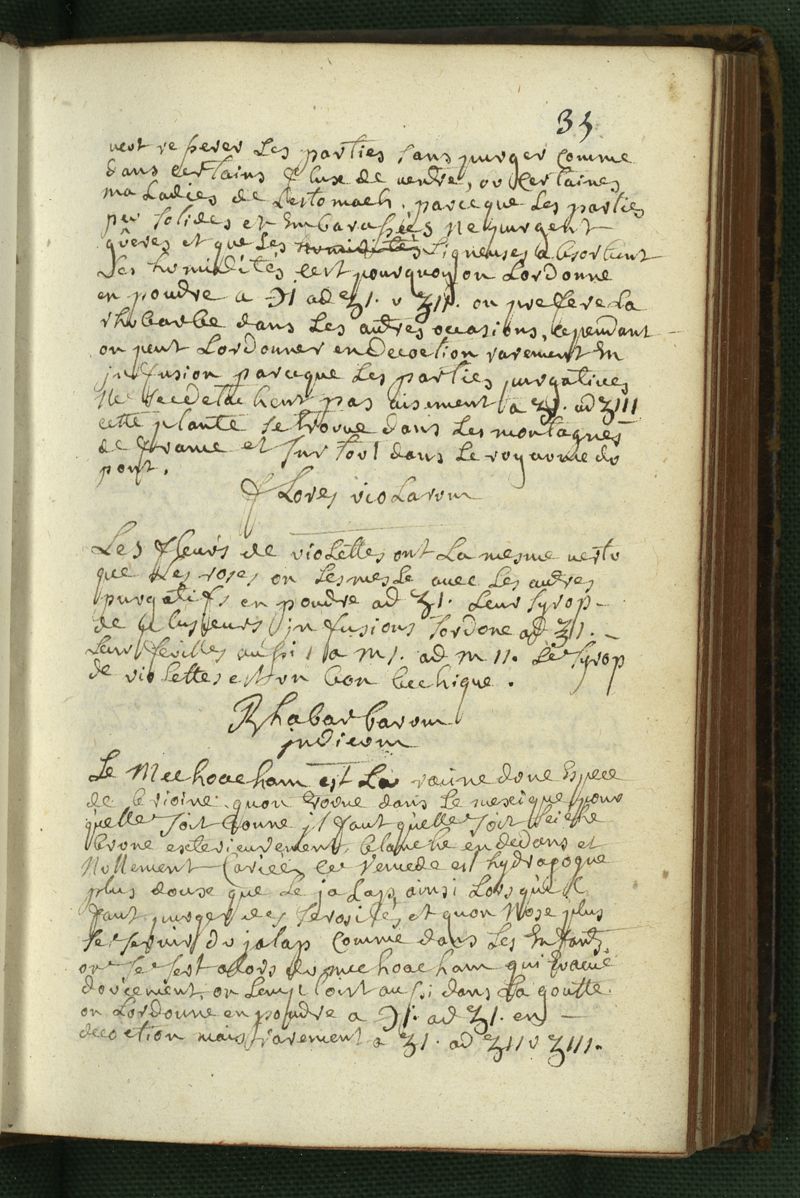 35
veut reserer Les parties sans purger Comme
dans certains flux de ventre, ou Certaines
maLadies de Lestomach, parceque Les parties
peu solides et Embarassées Ne purgent
gueres et que Les humidites Ligneuses absorbent
Les humidités cest pourquoy on Lordonne
en poudre a ℈i ad ʒi. v ʒii. on prefere La
rhubarbe dans Les autres occasions, cependant
on peut Lordonner en decoction rarement En
jnfusion parceque Les parties purgatives
Ne se detachent pas aisement a ʒi. ad ʒiii
cette plante se trouve dans Les montagnes
de france et sur tout dans Le royaume du
pont.
fLores vioLarum
Les fleurs de vioLettes ont La mesme vertu
que Les roses on LesmesLe avec Les autres
purgatifs en poudre ad ʒi. Leur syrop
de plusieurs jnfusions sordone ad ʒii.
Leur feuilles aussi a m i. ad m ii. Le syrop
de vioLettes est un bon bechique.
Rhabarbarum
jndicum
Le Mechoacham est La racine dune Espece
de brioine quon trouve dans Le mexique pour
quelle soit bonne jl faut quelle soit
brune exterieurement, blanche en dedans et
NuLlement Cariée, ce remede est hydragogue
plus douse que Le jaLap, ainsi Lorsquil
faut purger des serosités et quon Nose plus
se servir du jalap Comme dans Les Enfants,
on se sert alors du mechoacham qui Evacue
doucement, on Lemploit aussi dans La goutte.
on Lordonne en poudre a ℈i. ad ʒi. en
decoction mais rarement a ʒi. ad ʒii v ʒiii.